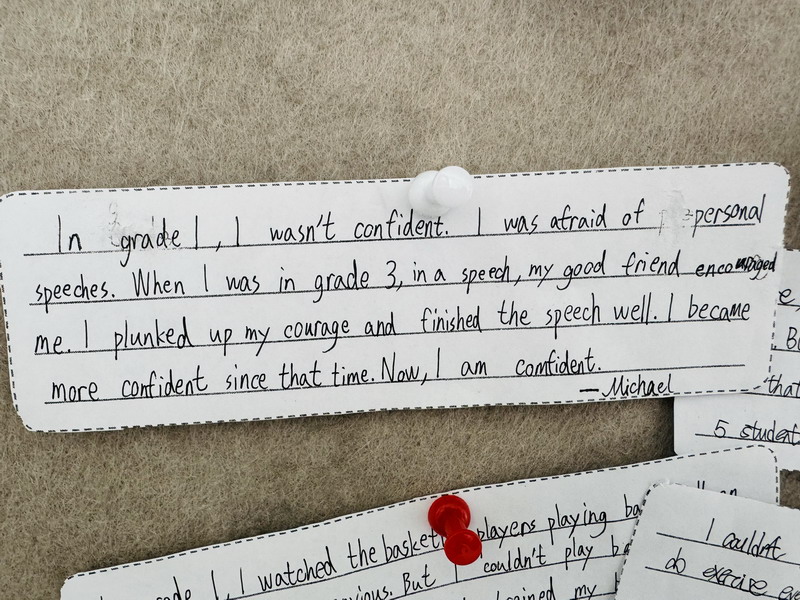 In grade 1, I wasn't confident. I was afraid of personal
speeches. When I was in grade 3, in a speech, my good friend encouraged
me. I plunked up my courage and finished the speech well. I became
more confident since that time. Now, I am comfident.
—Michael
that
5 student
1, I watched the basket players playing
But I couldn't play
my
I couldn't
do exercise